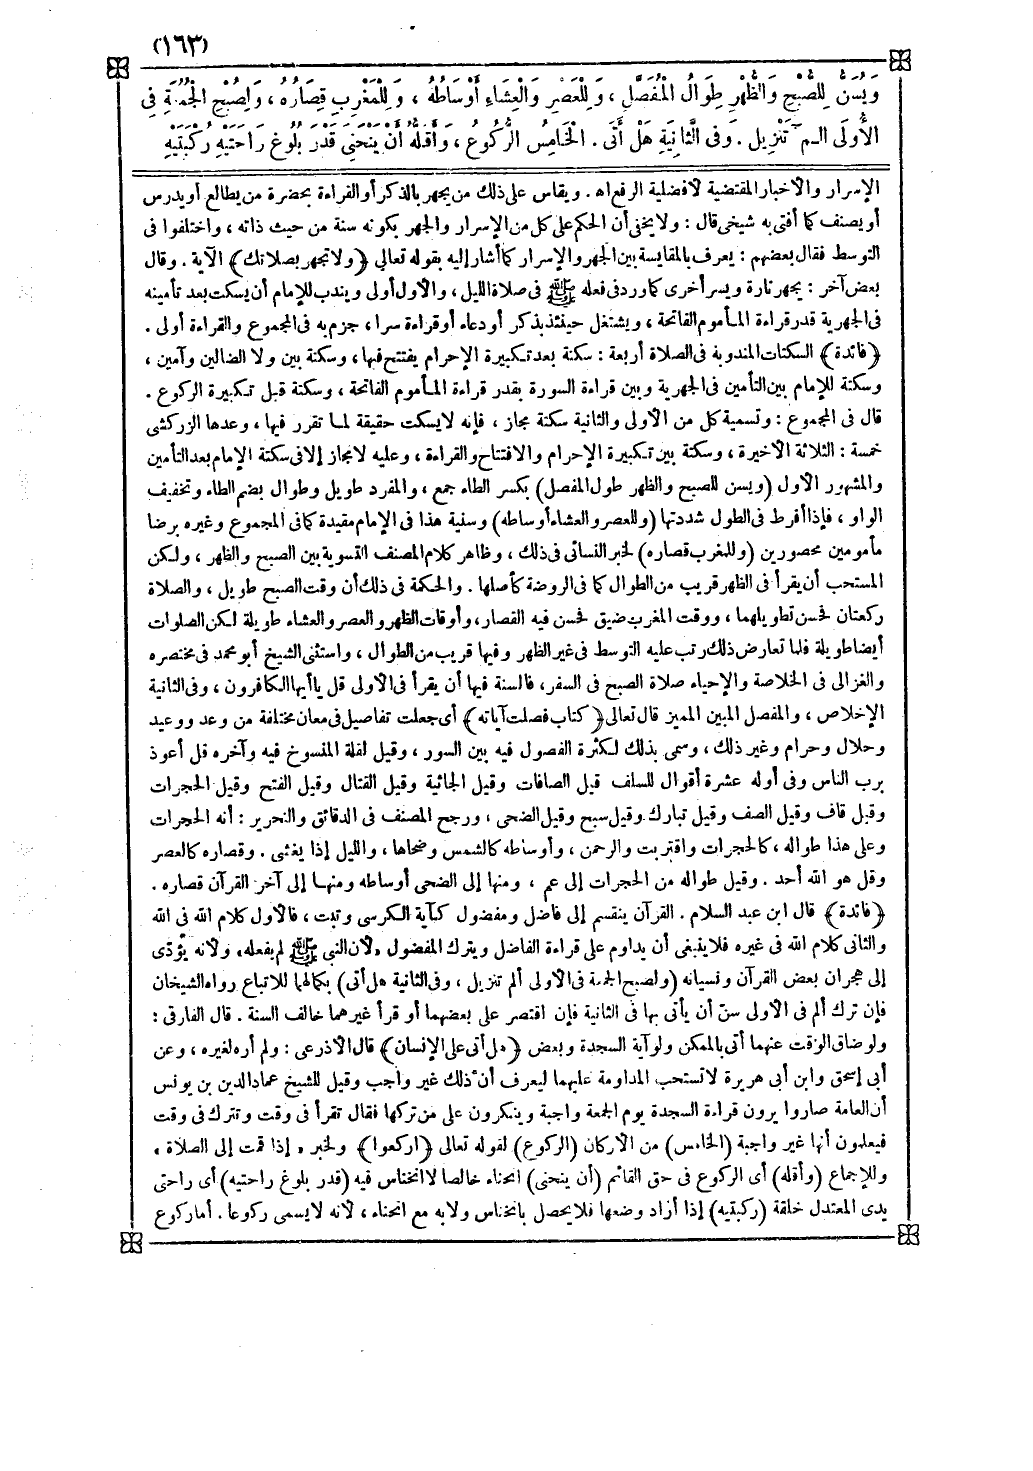 (١٦٣)
وَيُسَنُّ لِلصُّبْحِ وَالظُّهْرِ طِوَالُ الْمُفَصَّلِ ، وَلِلْعَصْرِ وَالْعِشَاءِ أَوْسَاطُهُ ، وَلِلْمَغْرِبِ قِصَارُهُ ، وَلِصُبْحِ الْجُمُعَةِ فِي
الْأُولَى الـم تَنْزِيل . وَفِي الثَّانِيَةِ هَلْ أَتَى . الْخَامِسُ الرُّكُوعُ ، وَأَقَلُّهُ أَنْ يَنْحَنِيَ قَدْرَ بُلُوغِ رَاحَتَيْهِ رُكْبَتَيْهِ
الإسرار والأخبار المقتضية لأفضلية الرفع اهـ . ويقاس على ذلك من يجهر بالذكر أو القراءة بحضرة من يطالع أو يدرس
أو يصنف كما أفتى به شيخي قال : ولا يخفى أن الحكم على كل من الإسرار والجهر بكونه سنة من حيث ذاته ، واختلفوا في
التوسط فقال بعضهم : يعرف بالمقايسة بين الجهر والإسرار كما أشار إليه بقوله تعالى ﴿ ولا تجهر بصلاتك ﴾ الآية . وقال
بعض آخر : يجهر تارة ويسر أخرى كما ورد في فعله ﷺ في صلاة الليل ، والأول أولى ويندب للإمام أن يسكت بعد تأمينه
في الجهرية قدر قراءة المأموم الفاتحة ، ويشتغل حينئذ بذكر أو دعاء أو قراءة سرا ، جزم به في المجموع والقراءة أولى .
﴿ فائدة ﴾ السكتات المندوبة في الصلاة أربعة : سكتة بعد تكبيرة الإحرام يفتتح فيها ، وسكتة بين ولا الضالين وآمين ،
وسكتة للإمام بين التأمين في الجهرية وبين قراءة السورة بقدر قراءة المأموم الفاتحة ، وسكتة قبل تكبيرة الركوع .
قال في المجموع : وتسمية كل من الأولى والثانية سكتة مجاز ، فإنه لا يسكت حقيقة لما تقرر فيها ، وعدها الزركشي
خمسة : الثلاثة الأخيرة ، وسكتة بين تكبيرة الإحرام والافتتاح والقراءة ، وعليه لا مجاز إلا في سكتة الإمام بعد التأمين
والمشهور الأول (ويسن للصبح والظهر طول المفصل) بكسر الطاء جمع ، والمفرد طويل وطوال بضم الطاء وتخفيف
الواو ، فإذا أفرط في الطول شددتها (وللعصر والعشاء أوساطه) وسنية هذا في الإمام مقيدة كما في المجموع وغيره برضا
مأمومين محصورين (وللمغرب قصاره) لخبر النسائي في ذلك ، وظاهر كلام المصنف التسوية بين الصبح والظهر ، ولكن
المستحب أن يقرأ في الظهر قريب من الطوال كما في الروضة كأصلها . والحكمة في ذلك أن وقت الصبح طويل ، والصلاة
ركعتان فحسن تطويلهما ، ووقت المغرب ضيق فحسن فيه القصار ، وأوقات الظهر والعصر والعشاء طويلة لكن الصلوات
أيضا طويلة فلما تعارض ذلك رتب عليه التوسط في غير الظهر وفيها قريب من الطوال ، واستثنى الشيخ أبو محمد في مختصره
والغزالي في الخلاصة والإحياء صلاة الصبح في السفر ، فالسنة فيها أن يقرأ في الأولى قل يا أيها الكافرون ، وفي الثانية
الإخلاص ، والمفصل المبين المميز قال تعالى ﴿ كتاب فصلت آياته ﴾ أي جعلت تفاصيل في معان مختلفة من وعد ووعيد
وحلال وحرام وغير ذلك ، وسمي بذلك لكثرة الفصول فيه بين السور ، وقيل لقلة المنسوخ فيه وآخره قل أعوذ
برب الناس وفي أوله عشرة أقوال للسلف قيل الصافات وقيل الجاثية وقيل القتال وقيل الفتح وقيل الحجرات
وقيل قاف وقيل الصف وقيل تبارك وقيل سبح وقيل الضحى ، ورجح المصنف في الدقائق والتحرير : أنه الحجرات
وعلى هذا طواله ، كالحجرات واقتربت والرحمن ، وأوساطه كالشمس وضحاها ، والليل إذا يغشى . وقصاره كالعصر
وقل هو الله أحد . وقيل طواله من الحجرات إلى عم ، ومنها إلى الضحى أوساطه ومنها إلى آخر القرآن قصاره .
﴿ فائدة ﴾ قال ابن عبد السلام . القرآن ينقسم إلى فاضل ومفضول كآية الكرسي وتبت ، فالأول كلام الله في الله
والثاني كلام الله في غيره فلا ينبغي أن يداوم على قراءة الفاضل ويترك المفضول ، لأن النبي ﷺ لم يفعله ، ولأنه يؤدي
إلى هجران بعض القرآن ونسيانه (ولصبح الجمعة في الأولى ألم تنزيل ، وفي الثانية هل أتى) بكمالها للاتباع رواه الشيخان
فإن ترك ألم في الأولى سن أن يأتي بها في الثانية فإن اقتصر على بعضهما أو قرأ غيرهما خالف السنة . قال الفارقي :
ولو ضاق الوقت عنهما أتى بالممكن ولو آية السجدة وبعض ﴿ هل أتى على الإنسان ﴾ قال الأذرعي : ولم أره لغيره ، وعن
أبي إسحق وابن أبي هريرة لا تستحب المداومة عليهما ليعرف أن ذلك غير واجب وقيل للشيخ عماد الدين بن يونس
أن العامة صاروا يرون قراءة السجدة يوم الجمعة واجبة وينكرون على من تركها فقال تقرأ في وقت وتترك في وقت
فيعلمون أنها غير واجبة (الخامس) من الأركان (الركوع) لقوله تعالى ﴿ اركعوا ﴾ ولخبر « إذا قمت إلى الصلاة »
وللإجماع (وأقله) أي الركوع في حق القائم (أن ينحني) انحناء خالصا لا انخناس فيه (قدر بلوغ راحتيه) أي راحتي
يدي المعتدل خلقة (ركبتيه) إذا أراد وضعها فلا يحصل بانخناس ولا به مع انحناء ، لأنه لا يسمى ركوعا . أما ركوع